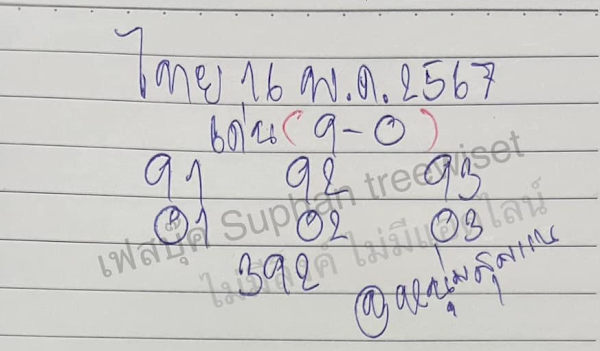 ไทย 16 พ.ค. 2567
เด่น (9-0)
91 92 93
01 02 03
392
@หนุ่มสุพรรณ
เฟสบุ๊ค Suphan treewiset
ไม่มีลงค์ ไม่มีแอดไลน์